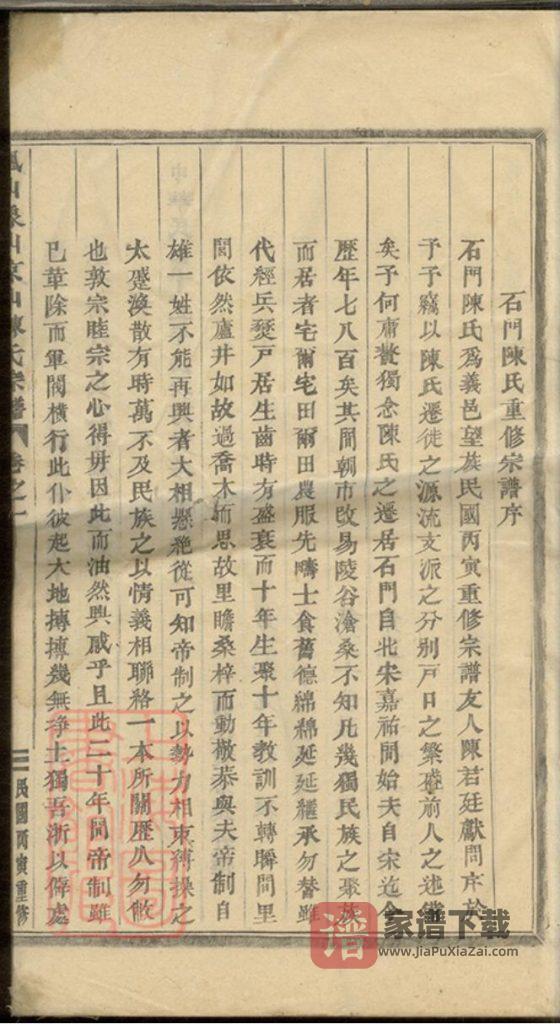 石門陳氏重修宗譜序
石門陳氏爲義邑望族民國丙寅重修宗譜友人陳若廷獻問序於
予予竊以陳氏遷徙之源流支派之分別戸口之繁盛前人之述備
矣予何庸贅獨念陳氏之遷居石門自北宋嘉祐間始夫自宋迄今
歷年七八百矣其間朝市改易陵谷滄桑不知凡幾獨民族之聚族
而居者宅爾宅田爾田農服先疇士食舊德綿綿延延繼承勿替雖
代經兵燹戸居生齒時有盛衰而十年生聚十年教訓不轉瞬間里
閭依然廬井如故過喬木而思故里瞻桑梓而動敬恭與夫帝制自
雄一姓不能再興者大相懸絶從可知帝制之以勢力相束縛操之
太蹙渙散有時萬不及民族之以情義相聯絡一本所關歷久勿散
也敦宗睦宗之心得毋因此而油然興感乎且此二十年間帝制雖
已革除而軍閥橫行此仆彼起大地摶摶幾無淨土獨吾浙以偉處
山陳氏宗譜
卷之一
三
民國丙寅重修
譜
家谱下载
www.JiaPuXiaZai.com